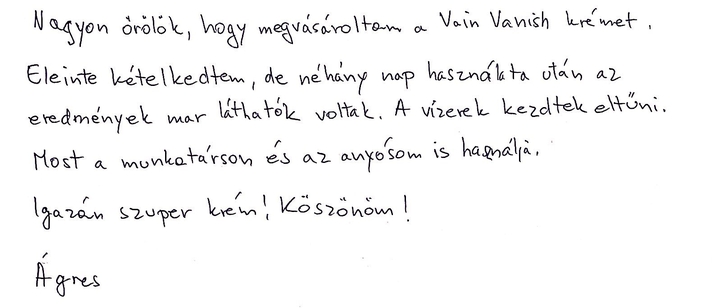 Nagyon örölök, hogy megvásároltam a Vain Vanish krémet.
Eleinte kételkedtem, de néhány nap használata után az
eredmények mar láthatók voltak. A vízerek kezdtek eltűni.
Most a munkatárson és az anyósom is hasmálja.
Igazán szuper krém! Köszönöm!
Ágres